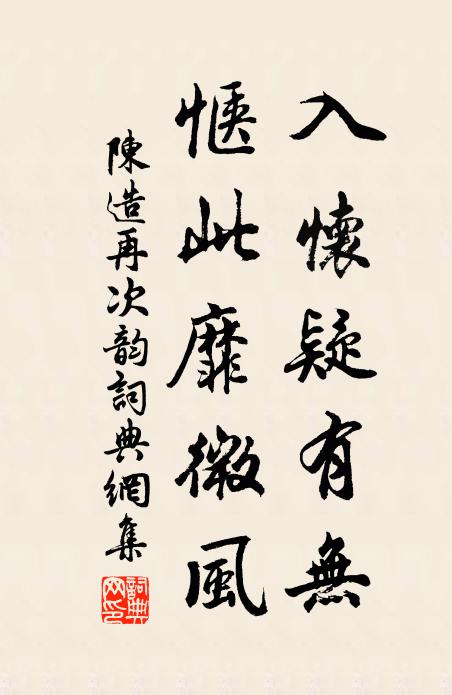 入懷疑有無
惬此靡微風
陳造再次韵詞典網集
詞典網印